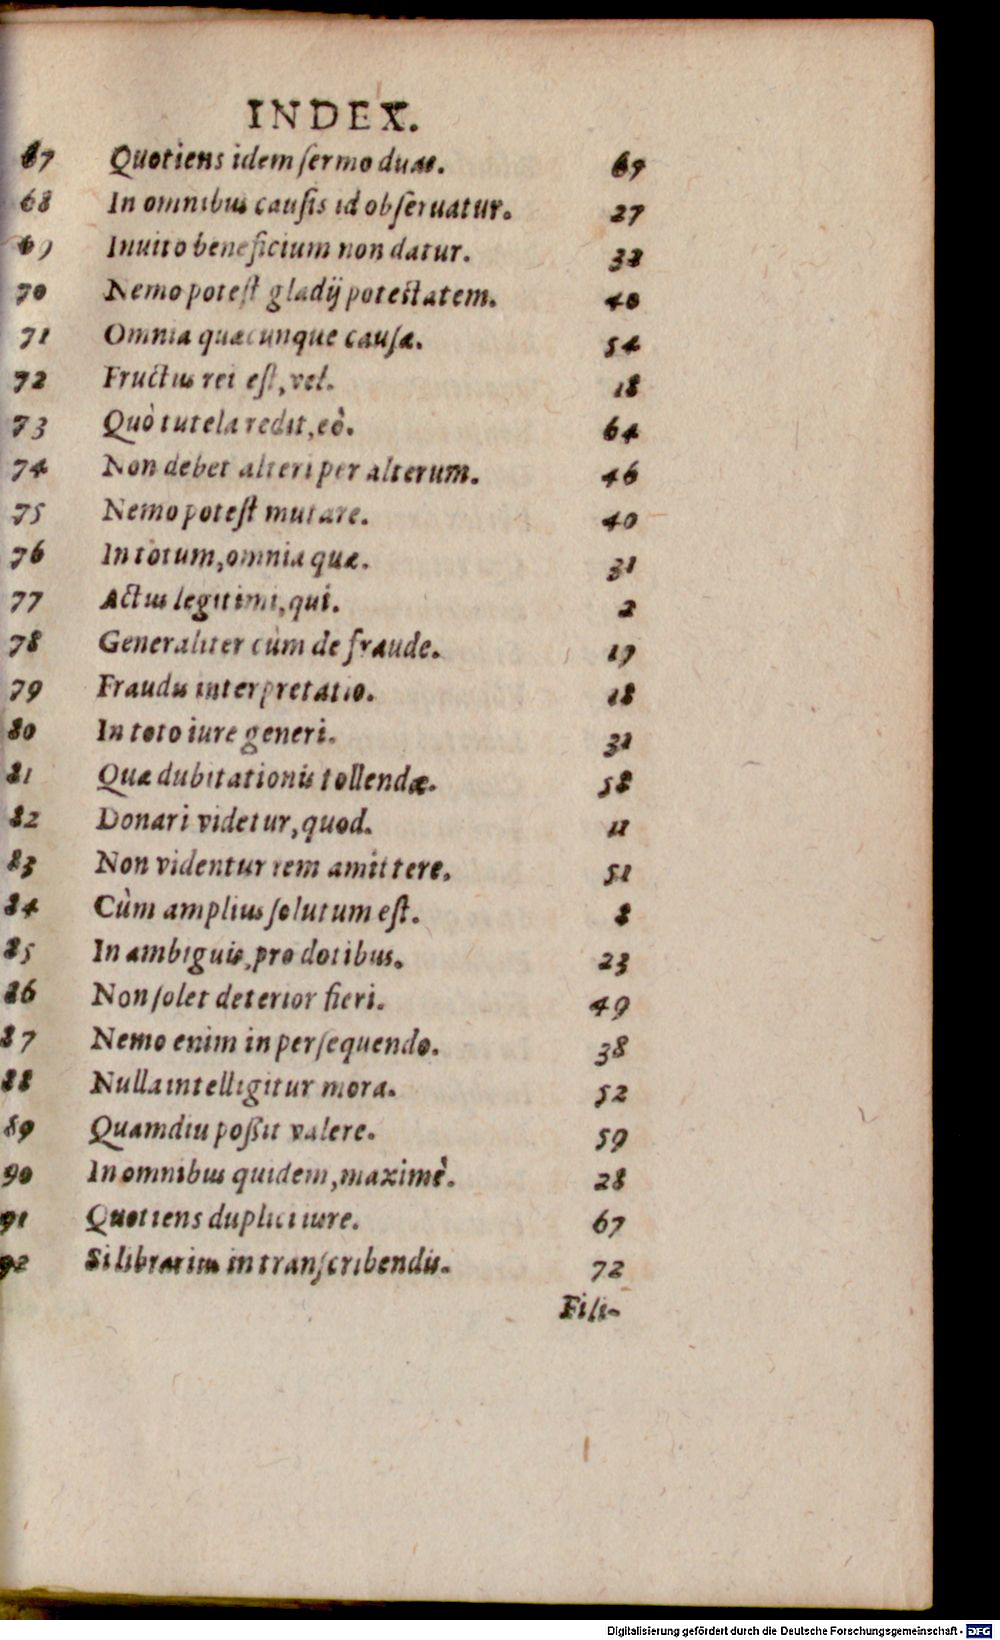 INDEX.
67 Quotiens idem ſermo duas. 69
68 In omnibus cauſis id obſeruatur. 27
69 Inuito beneficium non datur. 32
70 Nemo poteſt gladij potestatem. 40
71 Omnia quæcunque cauſæ. 54
72 Fructus rei eſt, vel. 18
73 Quò tutela redit, eò. 64
74 Non debet alteri per alterum. 46
75 Nemo poteſt mutare. 40
76 In totum, omnia quæ. 31
77 Actus legitimi, qui. 2
78 Generaliter cùm de fraude. 19
79 Fraudis interpretatio. 18
80 In toto iure generi. 31
81 Quæ dubitationis tollendæ. 58
82 Donari videtur, quod. 11
83 Non videntur rem amittere. 51
84 Cùm amplius ſolutum eſt. 8
85 In ambiguis, pro dotibus. 23
86 Non ſolet deterior fieri. 49
87 Nemo enim in perſequendo. 38
88 Nulla intelligitur mora. 52
89 Quamdiu poßit valere. 59
90 In omnibus quidem, maximè. 28
91 Quotiens duplici iure. 67
92 Si librarius in tranſcribendis. 72
Fili-
Digitalisierung gefördert durch die Deutsche Forschungsgemeinschaft - DFG